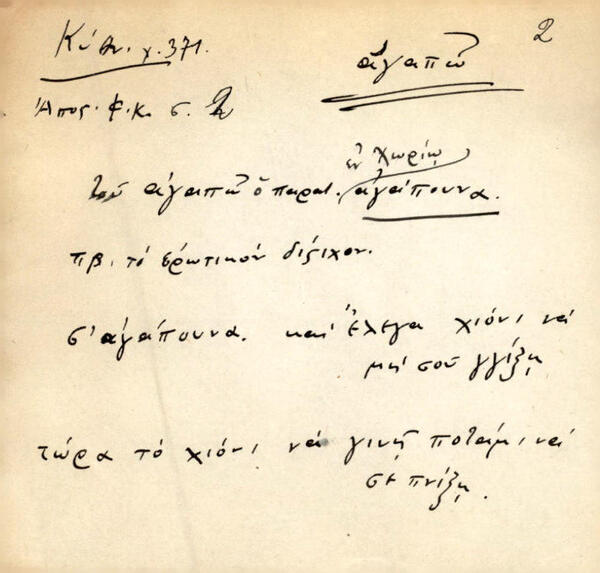 2
Κύθν. χ. 371.
ἀγαπῶ
Ἀποσ. Φ. Κ. σ. 2
ἐν Χωρίῳ
τοῦ ἀγαπῶ ὁ παρατ. ἀγάπουνα.
πβ. τὸ ἐρωτικὸν δίστιχον.
σ' ἀγάπουνα. καὶ ἔλεγα χιόνι νὰ
μὴ σοῦ γγίξῃ
τώρα τὸ χιόνι νὰ γινῇ ποτάμι νὰ
σὲ πνίξῃ.